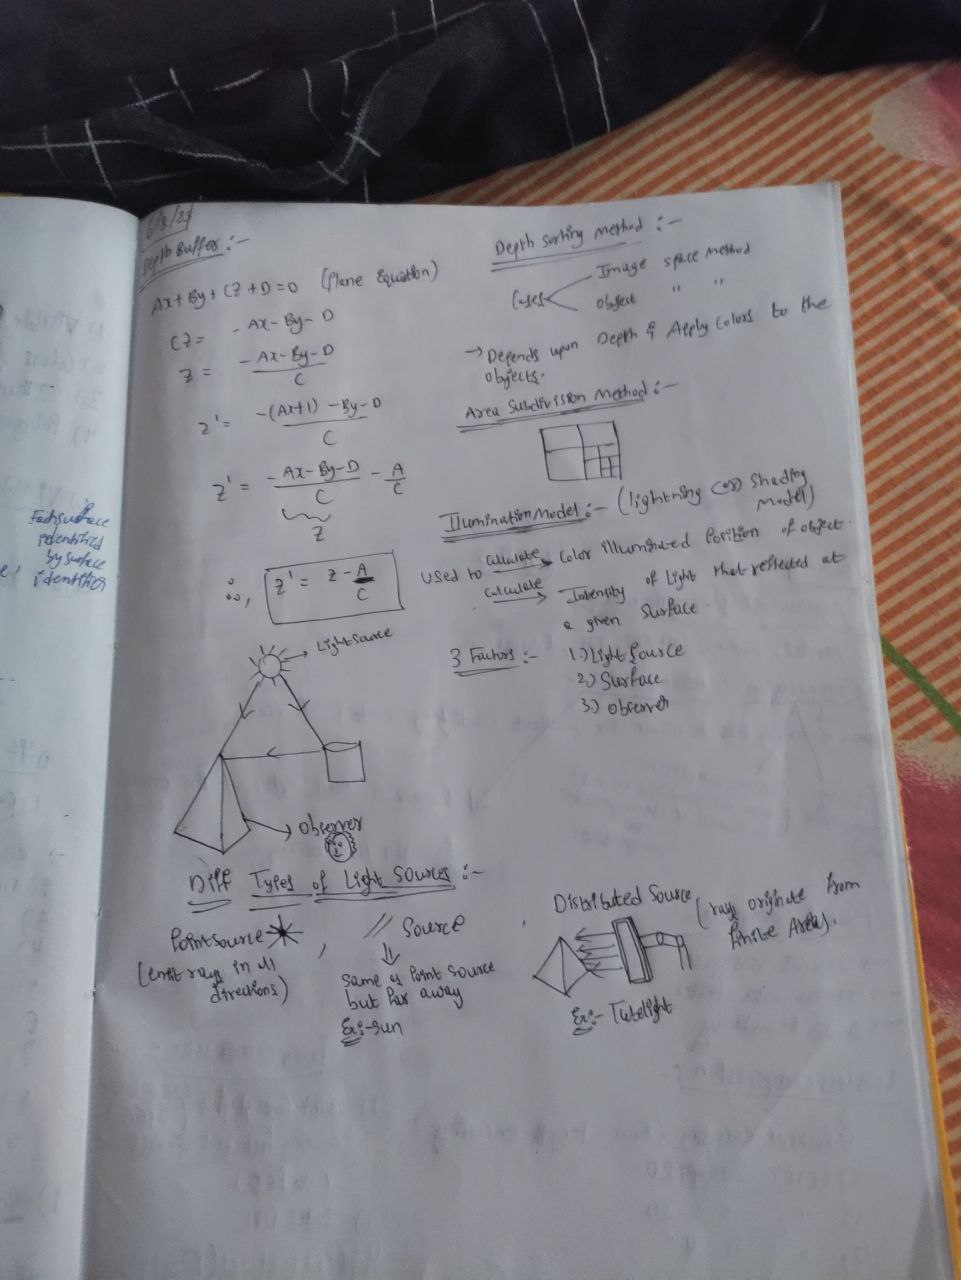 6/3/23
Depth Buffer :-
Ax + By + CZ + D = 0 (Plane Equation)
CZ = -Ax - By - D
Z = -Ax - By - D / C
z' = -(Ax+1) - By - D / C
Z' = -Ax - By - D / C - A / C
Z
∴, Z' = z - A / C
Light source
observer
Depth Sorting method :-
Cases
Image space method
object " "
→ Depends upon Depth & Apply Colors to the
objects.
Area Subdivision Method :-
Illumination Model :- (lightning (or) Shading
model)
Used to calculate → color illuminated Position of object.
calculate → Intensity of Light that reflected at
a given surface.
3 Factors :- 1) Light Source
2) Surface
3) observer
Diff Types of Light Sources :-
Point source
(emit rays in all
directions)
,
// Source
same as Point Source
but far away
Ex:- sun
,
Distributed Source (rays originate from
finite Area).
Ex:- Tubelight
Each surface
identified
by surface
identifier